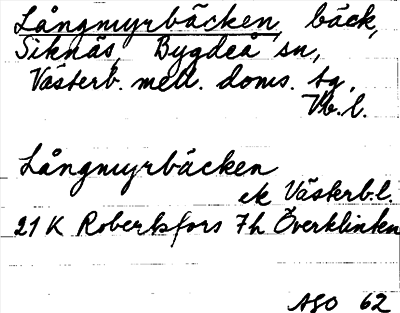 Långmyrbäcken, bäck,
Siknäs, Bygdeå sn,
Västerb. mell. doms. tg,
Vb. l.
Långmyrbäcken
ek Västerb.l.
21 K Robertsfors 7h Överklinten
ASO 62